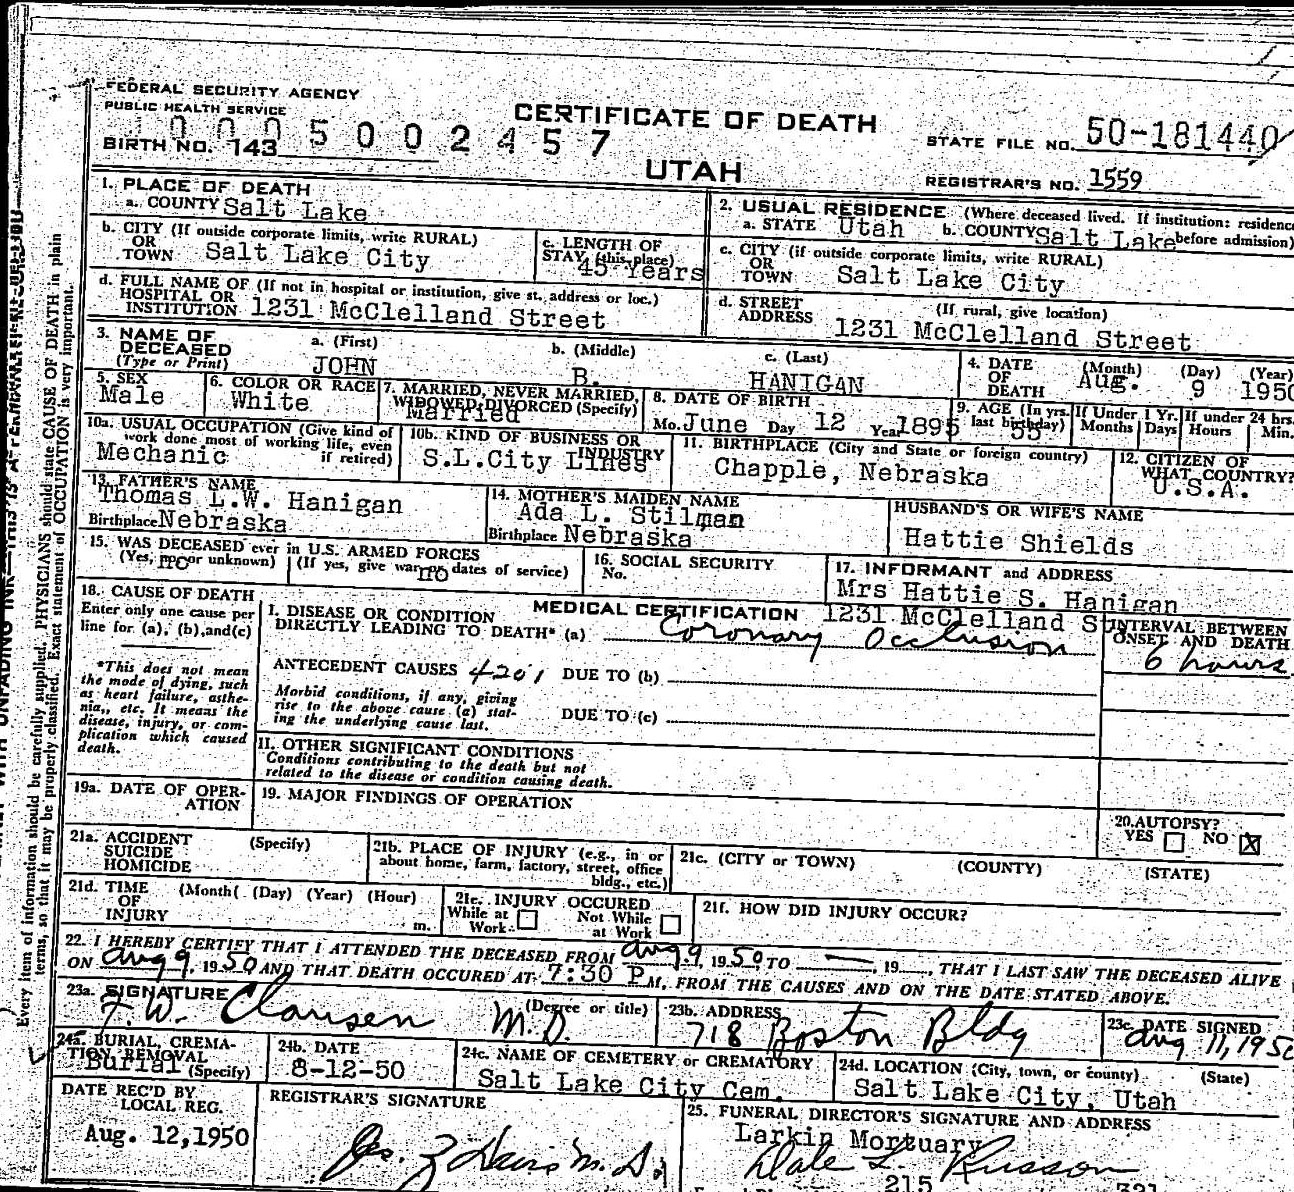 FEDERAL SECURITY AGENCY
PUBLIC HEALTH SERVICE
CERTIFICATE OF DEATH
UTAH
0005002457
BIRTH NO. 143
STATE FILE NO. 50-181440
REGISTRAR'S NO. 1559
1. PLACE OF DEATH
a. COUNTY Salt Lake
b. CITY (If outside corporate limits, write RURAL)
OR
TOWN Salt Lake City
c. LENGTH OF
STAY (this place)
45 Years
d. FULL NAME OF (If not in hospital or institution, give st. address or loc.)
HOSPITAL OR
INSTITUTION 1231 McClelland Street
2. USUAL RESIDENCE (Where deceased lived. If institution: residence
before admission)
a. STATE Utah b. COUNTY Salt Lake
c. CITY (if outside corporate limits, write RURAL)
OR
TOWN Salt Lake City
d. STREET
ADDRESS (If rural, give location)
1231 McClelland Street
3. NAME OF
DECEASED
(Type or Print)
a. (First) b. (Middle) c. (Last)
JOHN B. HANIGAN
4. DATE
OF
DEATH
(Month) (Day) (Year)
Aug. 9 1950
5. SEX
Male
6. COLOR OR RACE
White
7. MARRIED, NEVER MARRIED,
WIDOWED, DIVORCED (Specify)
Married
8. DATE OF BIRTH
Mo. June Day 12 Year 1895
9. AGE (In yrs.
last birthday)
55
If Under 1 Yr.
Months Days
If under 24 hrs.
Hours Min.
10a. USUAL OCCUPATION (Give kind of
work done most of working life, even
if retired)
Mechanic
10b. KIND OF BUSINESS OR
INDUSTRY
S.L.City Lines
11. BIRTHPLACE (City and State or foreign country)
Chapple, Nebraska
12. CITIZEN OF
WHAT COUNTRY?
U.S.A.
13. FATHER'S NAME
Thomas L.W. Hanigan
Birthplace Nebraska
14. MOTHER'S MAIDEN NAME
Ada L. Stilman
Birthplace Nebraska
HUSBAND'S OR WIFE'S NAME
Hattie Shields
15. WAS DECEASED ever in U.S. ARMED FORCES
(Yes, no or unknown) (If yes, give war or dates of service)
no no
16. SOCIAL SECURITY
No.
17. INFORMANT and ADDRESS
Mrs Hattie S. Hanigan
1231 McClelland St
18. CAUSE OF DEATH
Enter only one cause per
line for (a), (b), and (c)
*This does not mean
the mode of dying, such
as heart failure, asthe-
nia, etc. It means the
disease, injury, or com-
plication which caused
death.
MEDICAL CERTIFICATION
I. DISEASE OR CONDITION
DIRECTLY LEADING TO DEATH* (a) Coronary Occlusion
INTERVAL BETWEEN
ONSET AND DEATH
6 hours
ANTECEDENT CAUSES 4201 DUE TO (b)
Morbid conditions, if any, giving
rise to the above cause (a) stat-
ing the underlying cause last.
DUE TO (c)
II. OTHER SIGNIFICANT CONDITIONS
Conditions contributing to the death but not
related to the disease or condition causing death.
19a. DATE OF OPER-
ATION
19. MAJOR FINDINGS OF OPERATION
20. AUTOPSY?
YES NO X
21a. ACCIDENT
SUICIDE
HOMICIDE
(Specify)
21b. PLACE OF INJURY (e.g., in or
about home, farm, factory, street, office
bldg., etc.)
21c. (CITY or TOWN) (COUNTY) (STATE)
21d. TIME
OF
INJURY
(Month( (Day) (Year) (Hour)
m.
21e. INJURY OCCURED
While at
Work
Not While
at Work
21f. HOW DID INJURY OCCUR?
22. I HEREBY CERTIFY THAT I ATTENDED THE DECEASED FROM Aug 9, 1950 TO —, 19 , THAT I LAST SAW THE DECEASED ALIVE
ON Aug 9, 1950 AND THAT DEATH OCCURED AT 7:30 P M, FROM THE CAUSES AND ON THE DATE STATED ABOVE.
23a. SIGNATURE (Degree or title)
F.W. Clausen M.D.
23b. ADDRESS
718 Boston Bldg
23c. DATE SIGNED
Aug 11, 1950
24a. BURIAL, CREMA-
TION, REMOVAL
(Specify)
Burial
24b. DATE
8-12-50
24c. NAME OF CEMETERY or CREMATORY
Salt Lake City Cem.
24d. LOCATION (City, town, or county) (State)
Salt Lake City, Utah
DATE REC'D BY
LOCAL REG.
Aug. 12,1950
REGISTRAR'S SIGNATURE
25. FUNERAL DIRECTOR'S SIGNATURE AND ADDRESS
Larkin Mortuary
Dale L. Russon
215 321
Every item of information should be carefully supplied. PHYSICIANS should state CAUSE OF DEATH in plain
terms, so that it may be properly classified. Exact statement of OCCUPATION is very important.